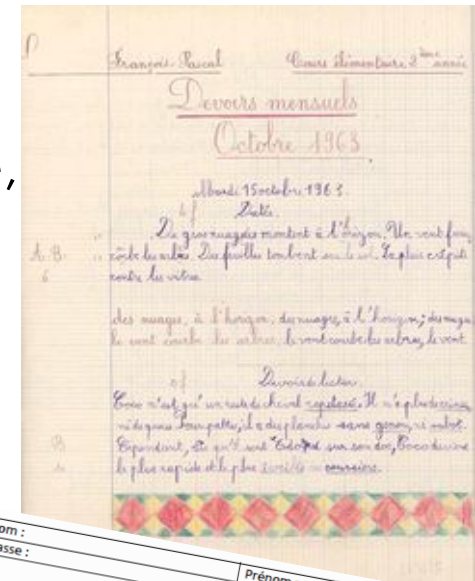 François Pascal Cours élémentaire 2ème année
Devoirs mensuels
Octobre 1963
Mardi 15 octobre 1963.
Dictée.
De gros nuages montent à l'horizon. Un vent
courbe les arbres. Des feuilles tombent sur le sol. La pluie crépite
contre les vitres.
A. B.
6
des nuages, à l'horizon, des nuages, à l'horizon; des nuages
le vent courbe les arbres, le vent courbe les arbres, le vent
Devoir de lecture
Coco n'est qu' un cheval Il n'a plus de
ni de queue il a des planches sans genou, ni sabot.
Cependant, dès qu'il sur son dos, Coco devient
le plus rapide et le plus coursiers.
B
om :
asse :
Prénom